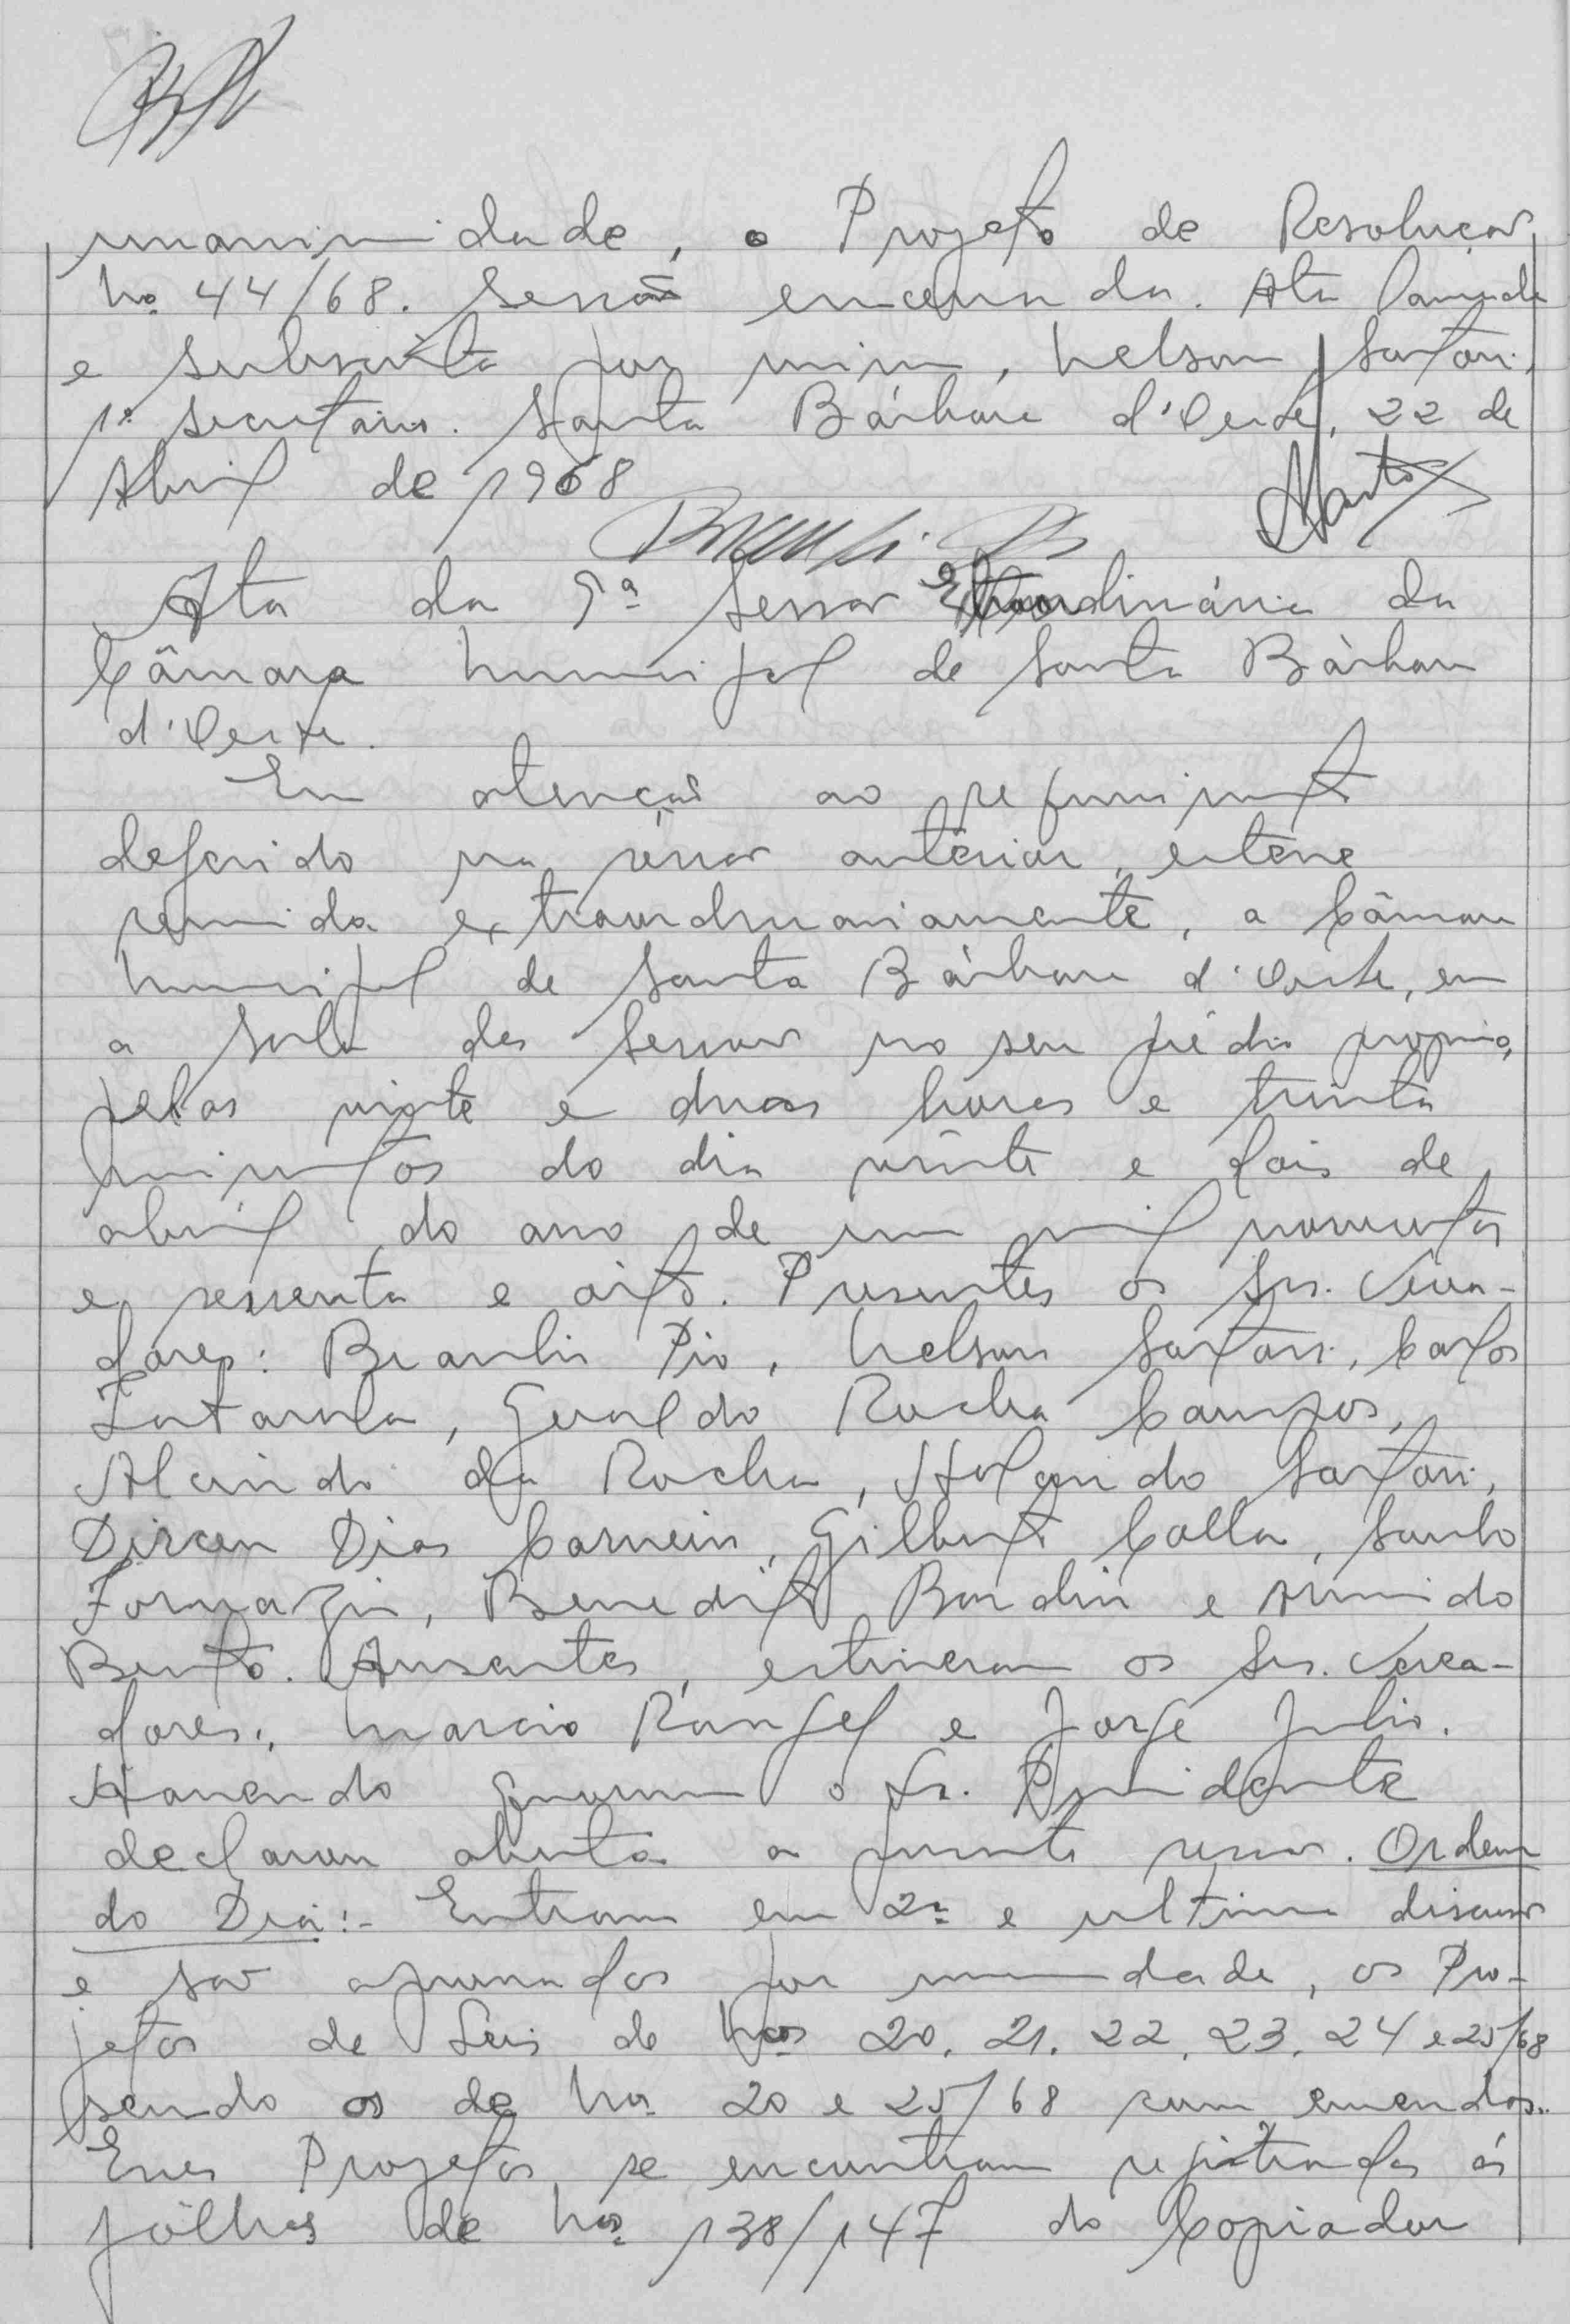 unanimidade, o Projeto de Resolução
No. 44/68. Sessão encerrada. Ata lavrada
e subscrita por mim, Nelson Sartori,
1º secretário. Santa Bárbara d'Oeste, 22 de
Abril de 1968
Ata da 5ª Sessão Extraordinária da
Câmara Municipal de Santa Bárbara
d'Oeste.
Em atenção ao requerimento
deferido na sessão anterior, esteve
reunida extraordinariamente, a Câmara
Municipal de Santa Bárbara d'Oeste, em
a sala das Sessões no seu prédio proprio,
pelas vinte e duas horas e trinta
minutos do dia vinte e dois de
abril do ano de um mil novecentos
e sessenta e oito. Presentes os Srs. Verea-
dores: Braulio Pio, Nelson Sartori, Carlos
Zatarola, Geraldo Rocha Campos,
Alcindo da Rocha, Holando Sartori,
Dirceu Dias Carneiro, Gilberto Colla, Santo
Fornazin, Benedito Bondin e Armindo
Bento. Ausentes, estiveram os Srs. Verea-
dores: Marcio Rangel e Jorge Julio.
Havendo quorum o Sr. Presidente
declarou aberta a presente sessão. Ordem
do Dia:- Entram em 2ª e ultima discussão
e são aprovados por unanimidade, os Pro-
jetos de Leis de Nos 20, 21, 22, 23, 24 e 25/68
sendo os de Nos 20 e 25/68 com emendas.
Esses Projetos se encontram registrados ás
fôlhas de Nos 138/147 do Copiador